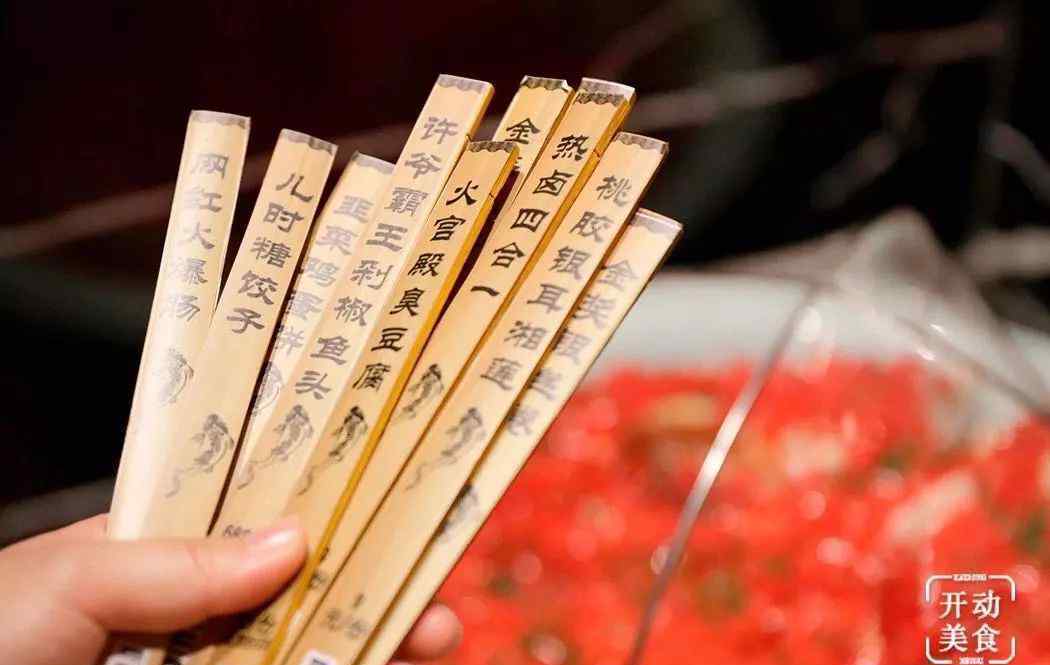 网红火爆肠
儿时糖饺子
韭菜鸡蛋饼
许爷霸王剁椒鱼头
火宫殿臭豆腐
金
热卤四合一
桃胶银耳湘莲
金奖银丝
开动
美食